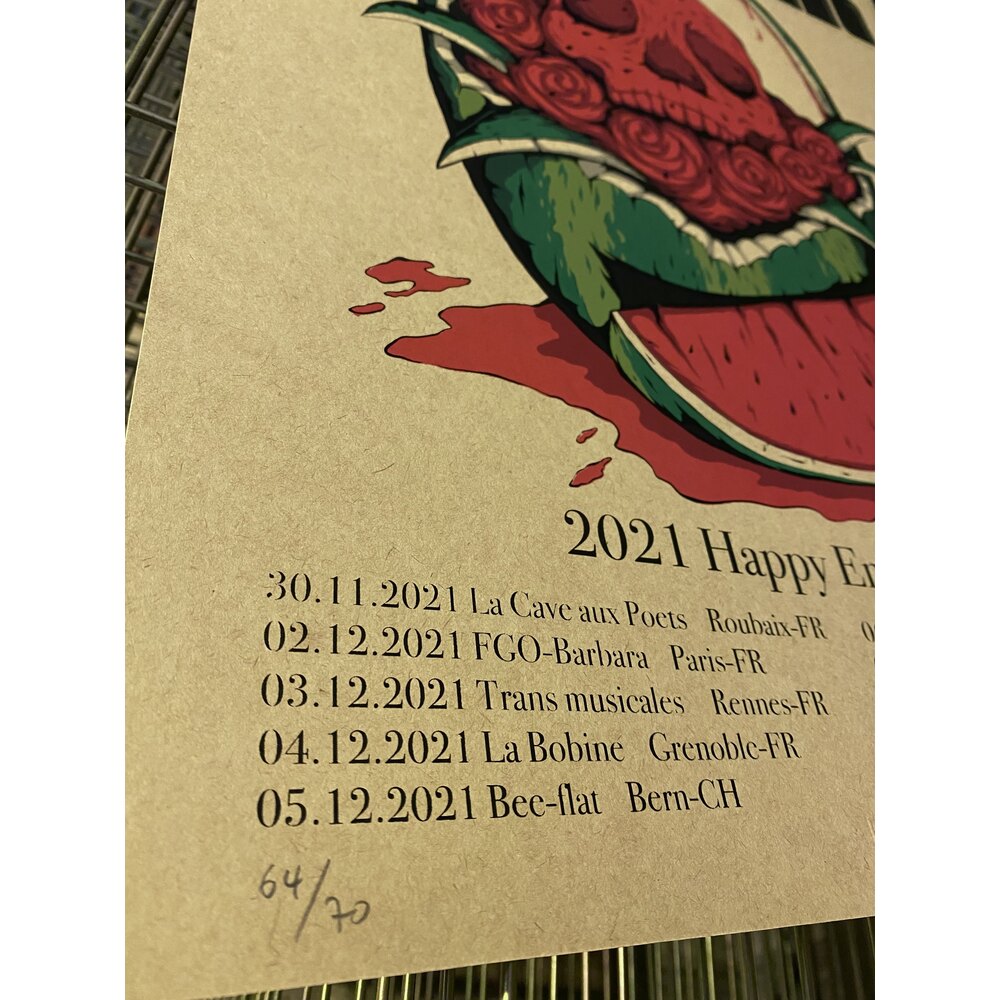 2021 Happy
30.11.2021 La Cave aux Poets Roubaix-FR
02.12.2021 FGO-Barbara Paris-FR
03.12.2021 Trans musicales Rennes-FR
04.12.2021 La Bobine Grenoble-FR
05.12.2021 Bee-flat Bern-CH
64/70